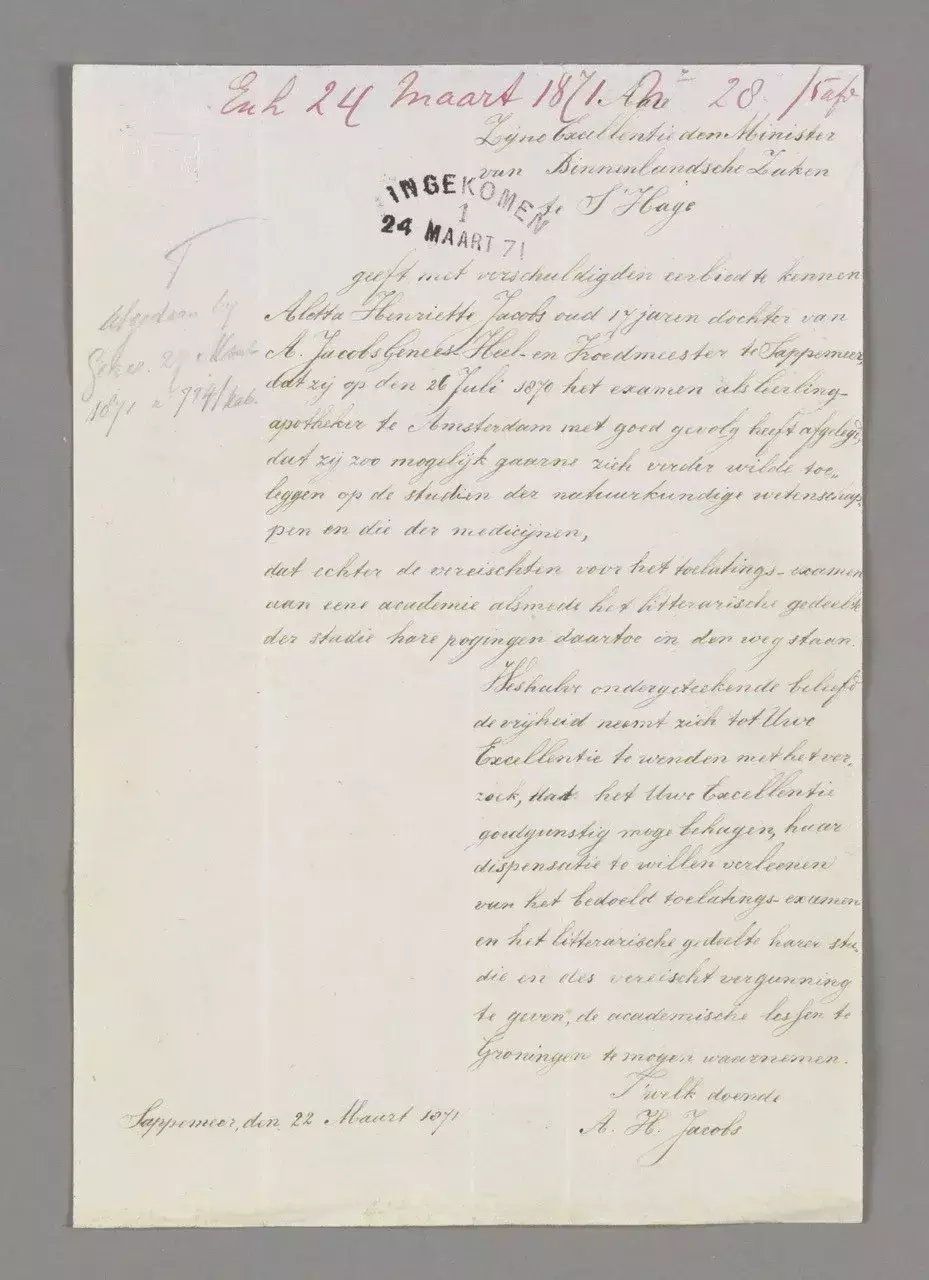 Exh 24 Maart 1871 No 28. /5 afd
Aan
Zijne Excellentie den Minister
van Binnenlandsche Zaken
te S' Hage
INGEKOMEN
1
24 MAART 71
Afgedaan bij
27 Maart
1871 n 994/Kab.
geeft met verschuldigden eerbied te kennen
Aletta Henriette Jacobs oud 17 jaren dochter van
A. Jacobs Genees- Heel- en Vroedmeester te Sappemeer,
dat zij op den 26 Juli 1870 het examen als leerling-
apotheker te Amsterdam met goed gevolg heeft afgelegd,
dat zij zoo mogelijk gaarne zich verder wilde toe-
leggen op de studien der natuurkundige wetenschap-
pen en die der medicijnen,
dat echter de vereischten voor het toelatings-examen
aan eene academie alsmede het litterarische gedeelte
der studie hare pogingen daartoe in den weg staan.
Weshalve ondergeteekende beleefd
de vrijheid neemt zich tot Uwe
Excellentie te wenden met het ver-
zoek, dat het Uwe Excellentie
goedgunstig moge behagen, haar
dispensatie te willen verleenen
van het bedoeld toelatings-examen
en het litterarische gedeelte harer stu-
die en des vereischt vergunning
te geven, de academische lessen te
Groningen te mogen waarnemen.
T'welk doende
A. H. Jacobs
Sappemeer, den 22 Maart 1871